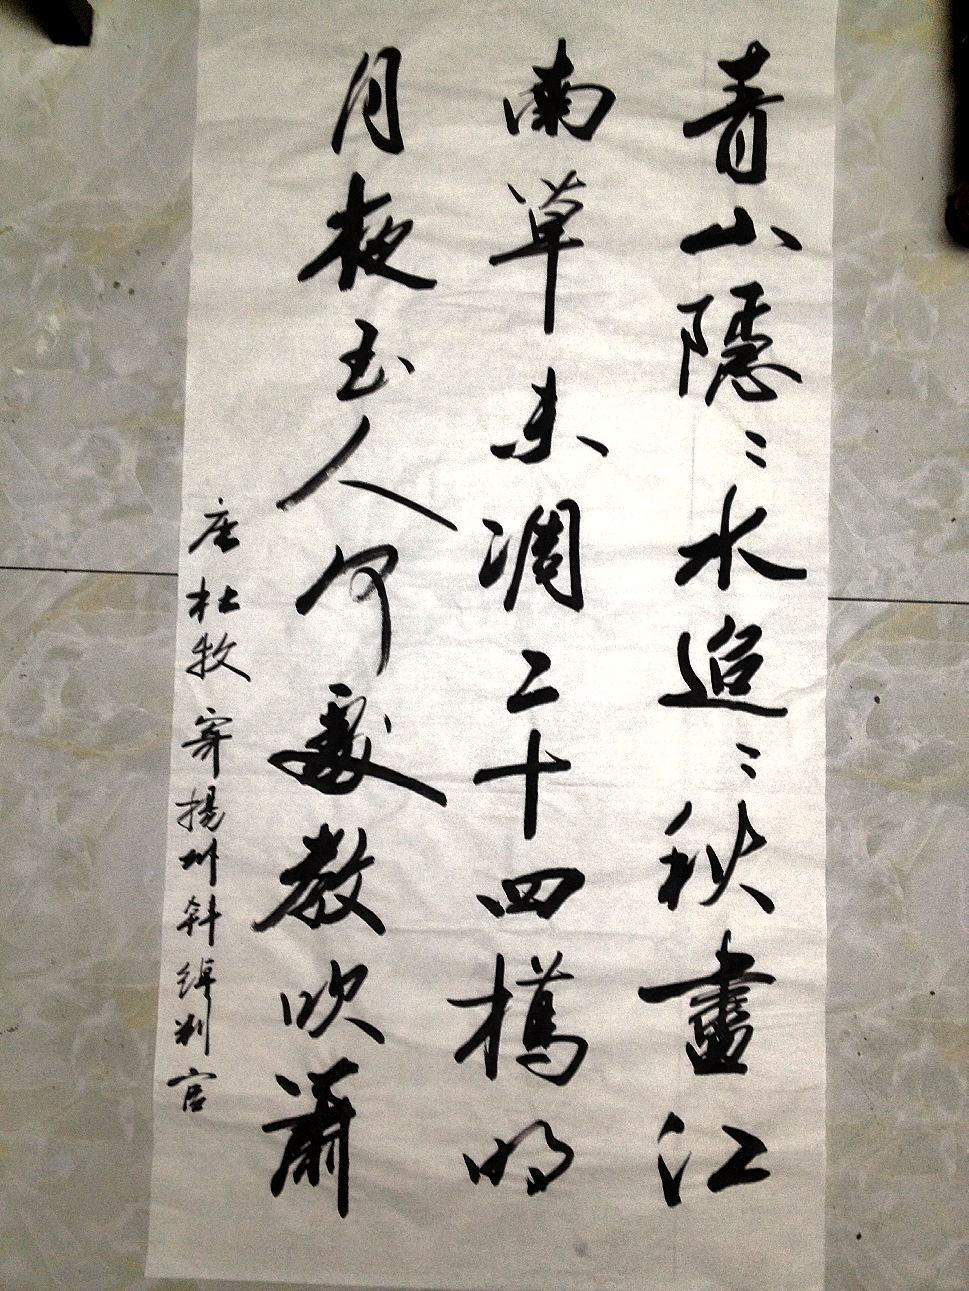 青山隱〻水迢〻秋盡江
南草未凋二十四橋明
月夜玉人何處教吹簫
唐杜牧寄揚州韓綽判官